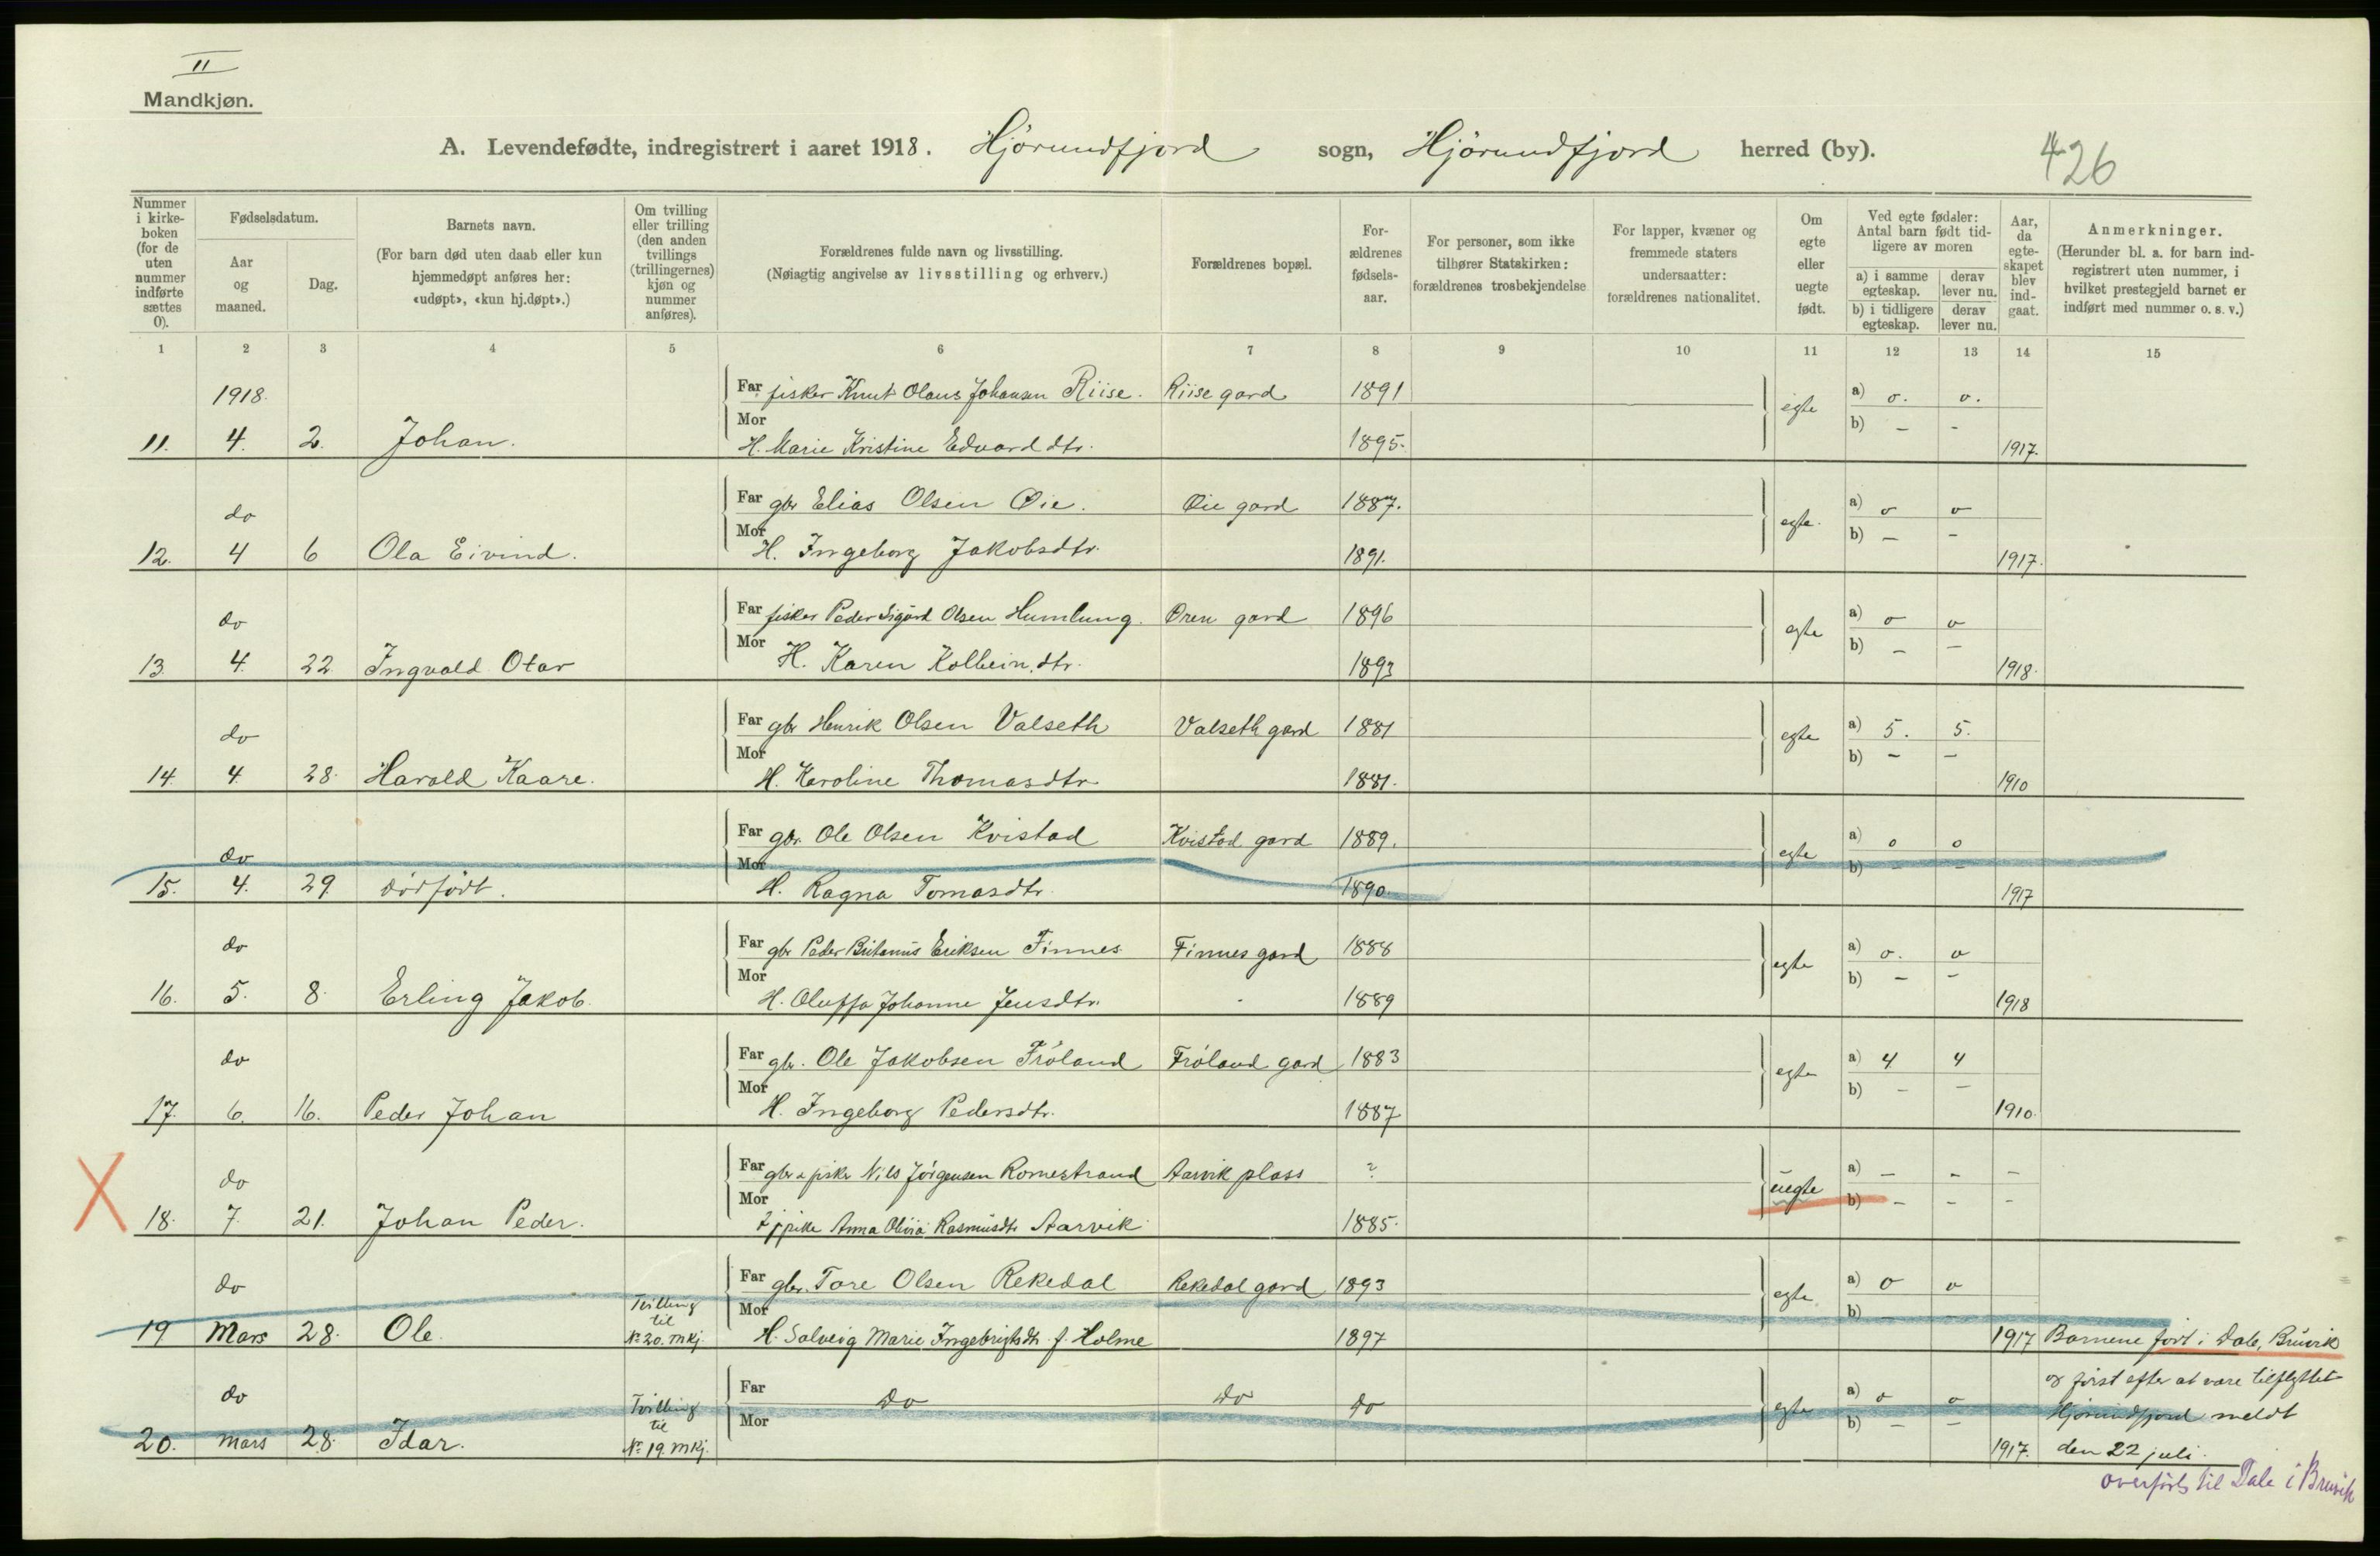 II
Mandkjøn.
A. Levendefødte, indregistrert i aaret 1918. Hjörundfjord sogn, Hjörundfjord herred (by).
426
Nummer i kirkeboken (for de uten nummer indførte sættes 0).
Fødselsdatum.
Aar og maaned.
Dag.
Barnets navn.
(For barn død uten daab eller kun hjemmedøpt anføres her: «udøpt», «kun hj.døpt».)
Om tvilling eller trilling (den anden tvillings (trillingernes) kjøn og nummer anføres).
Forældrenes fulde navn og livsstilling.
(Nøiagtig angivelse av livsstilling og erhverv.)
Forældrenes bopæl.
Forældrenes fødselsaar.
For personer, som ikke tilhører Statskirken: forældrenes trosbekjendelse
For lapper, kvæner og fremmede staters undersaatter: forældrenes nationalitet.
Om egte eller uegte født.
Ved egte fødsler: Antal barn født tidligere av moren
a) i samme egteskap. derav lever nu.
b) i tidligere egteskap. derav lever nu.
Aar, da egteskapet blev indgaat.
Anmerkninger.
(Herunder bl. a. for barn indregistrert uten nummer, i hvilket prestegjeld barnet er indført med nummer o. s. v.)
1 2 3 4 5 6 7 8 9 10 11 12 13 14 15
1918. Far fisker Knut Olaus Johansen Riise. Riise gard 1891 egte a) o. o.
11. 4. 2. Johan. Mor H. Marie Kristine Edvard dtr. 1895. b) – - 1917.
do Far gbr Elias Olsen Øie. Øie gard 1887. egte. a) o o
12. 4 6 Ola Eivind. Mor H. Ingeborg Jakobsdtr. 1891. b) – - 1917.
do Far fisker Peder Sigurd Olsen Humlung. Ören gard 1896 egte a) o o
13. 4. 22. Ingvald Otar Mor H. Karen Kolbein.dtr. 1893 b) – – 1918.
do Far gbr Henrik Olsen Valseth Valseth gard 1881 egte a) 5. 5.
14. 4. 28. Harald Kaare. Mor H. Karoline Thomasdtr. 1881. b) – – 1910
do Far gbr. Ole Olsen Kvistad Kvistad gard 1889. egte a) o o
15. 4. 29 dödfödt. Mor H. Ragna Tomasdtr. 1890. b) – – 1917
do Far gbr Peder Eriksen Finnes Finnes gard 1888 egte a) o. o
16. 5. 8. Erling Jakob. Mor H. Oluffa Johanne Jensdtr. 1889 b) – – 1918
do Far gbr. Ole Jakobsen Fröland Fröland gard 1883 egte a) 4 4
17. 6. 16. Peder Johan Mor H. Ingeborg Pedersdtr. 1887 b) – – 1910.
X do Far gbr & fisker Nils Jörgensen Romestrand Aarvik plass ? uegte a) – - –
18. 7. 21. Johan Peder. Mor pike Anna Olivia Rasmusdtr Aarvik 1885. b) – - -
do Far gbr. Tore Olsen Rekedal Rekedal gard 1893 egte a) o o
19 Mars 28. Ole. Tvilling til No 20. mkj. Mor H. Solveig Marie Ingebrigtsdtr. f. Holme 1897 b) – – 1917 Barnene födt i Dale, Bruvik
do Tvilling til No 19. mkj. Far do do do egte a) o o og först efter at være tilflyttet
20. Mars 28. Idar. Mor b) – – Hjörundfjord meldt
1917. den 22 juli.
overförts til Dale i Bruvik